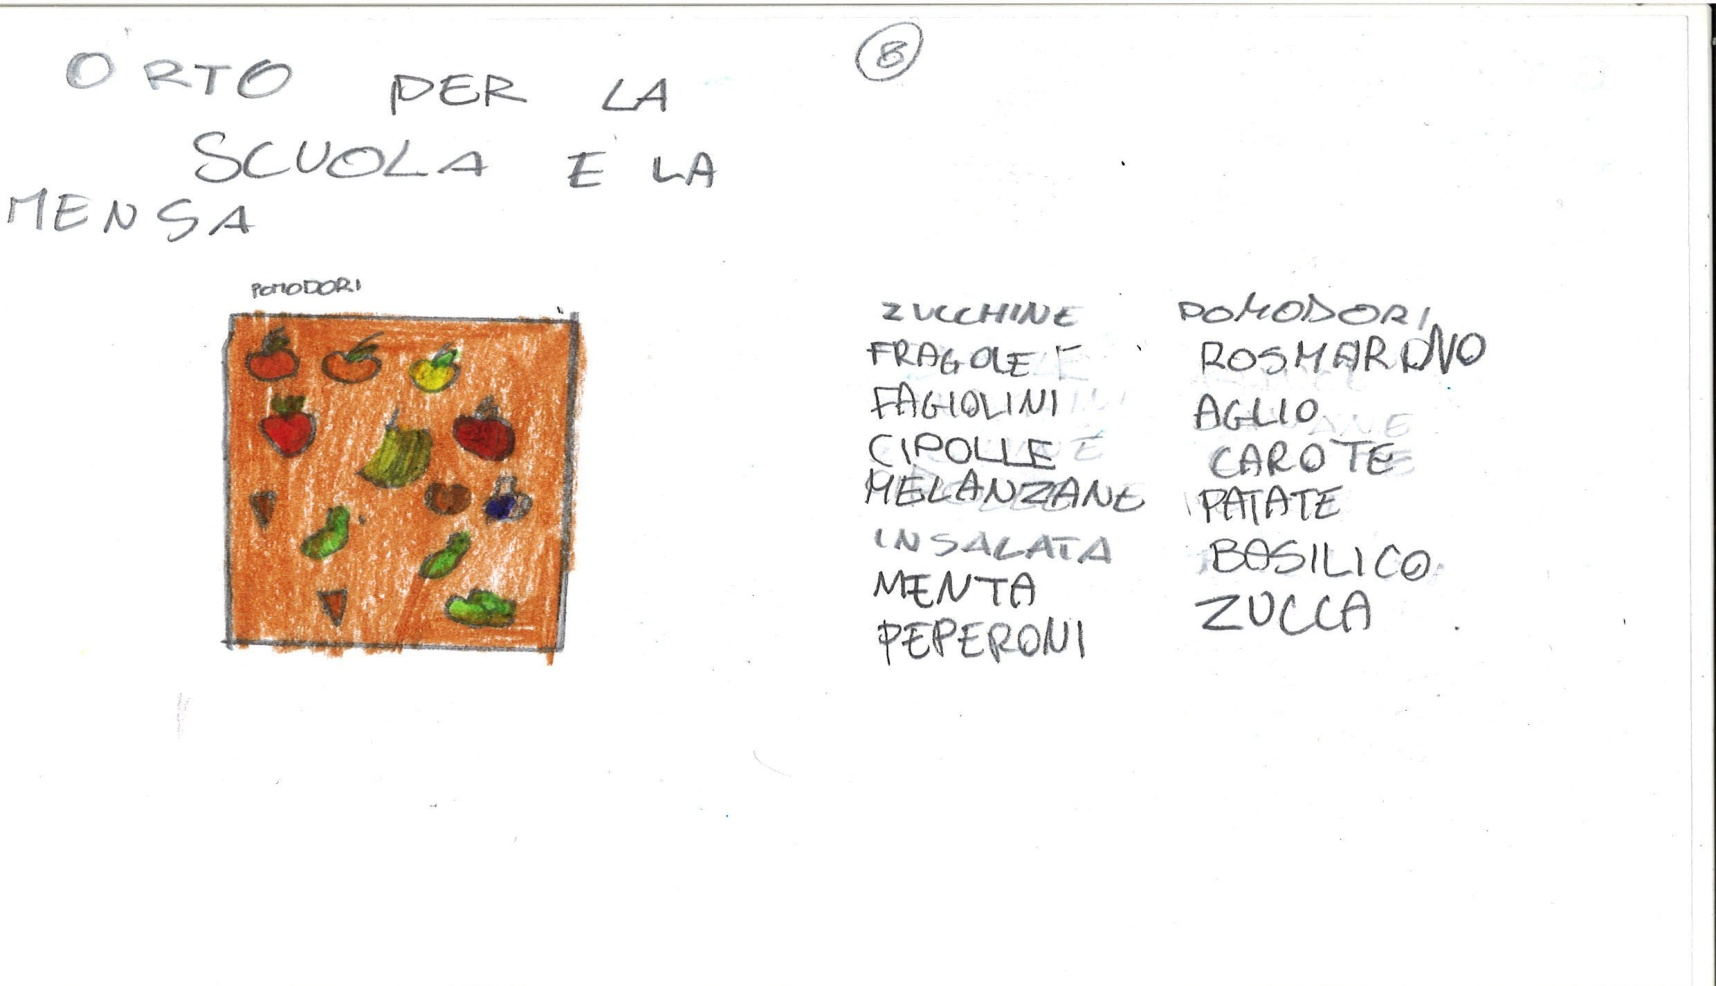 ORTO PER LA
8
SCUOLA E LA
MENSA
POMODORI
ZUCCHINE
FRAGOLE
FAGIOLINI
CIPOLLE
MELANZANE
INSALATA
MENTA
PEPERONI
POMODORI
ROSMARINO
AGLIO
CAROTE
PATATE
BASILICO
ZUCCA